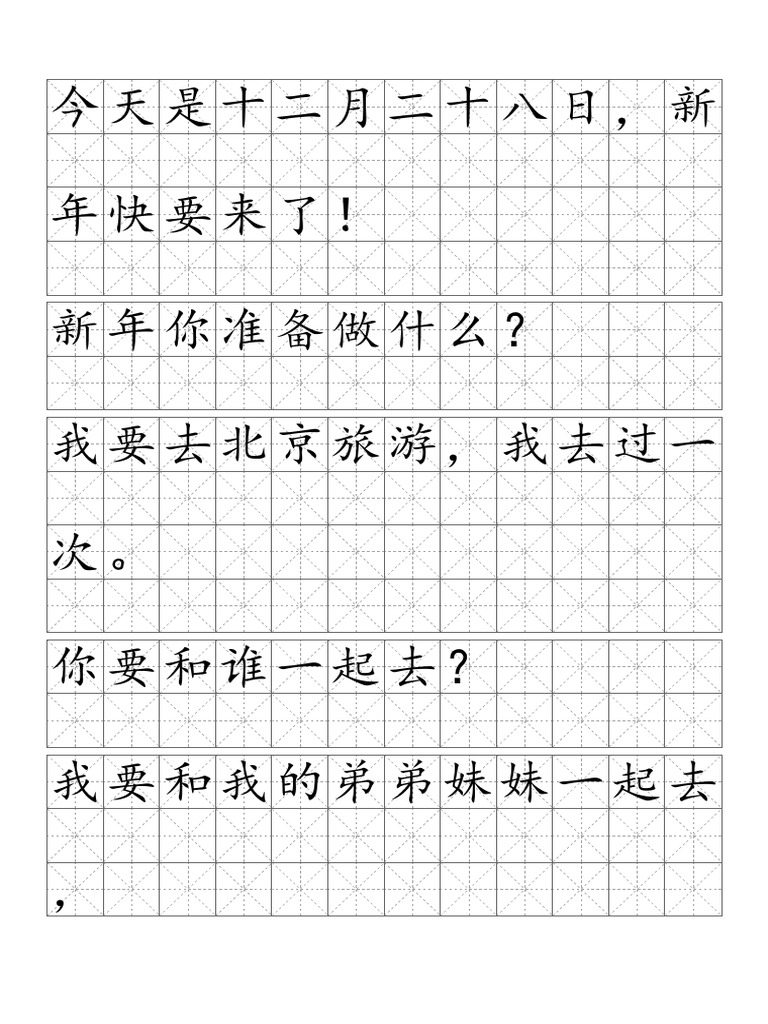 今天是十二月二十八日，新
年快要来了！
新年你准备做什么？
我要去北京旅游，我去过一
次。
你要和谁一起去？
我要和我的弟弟妹妹一起去
，